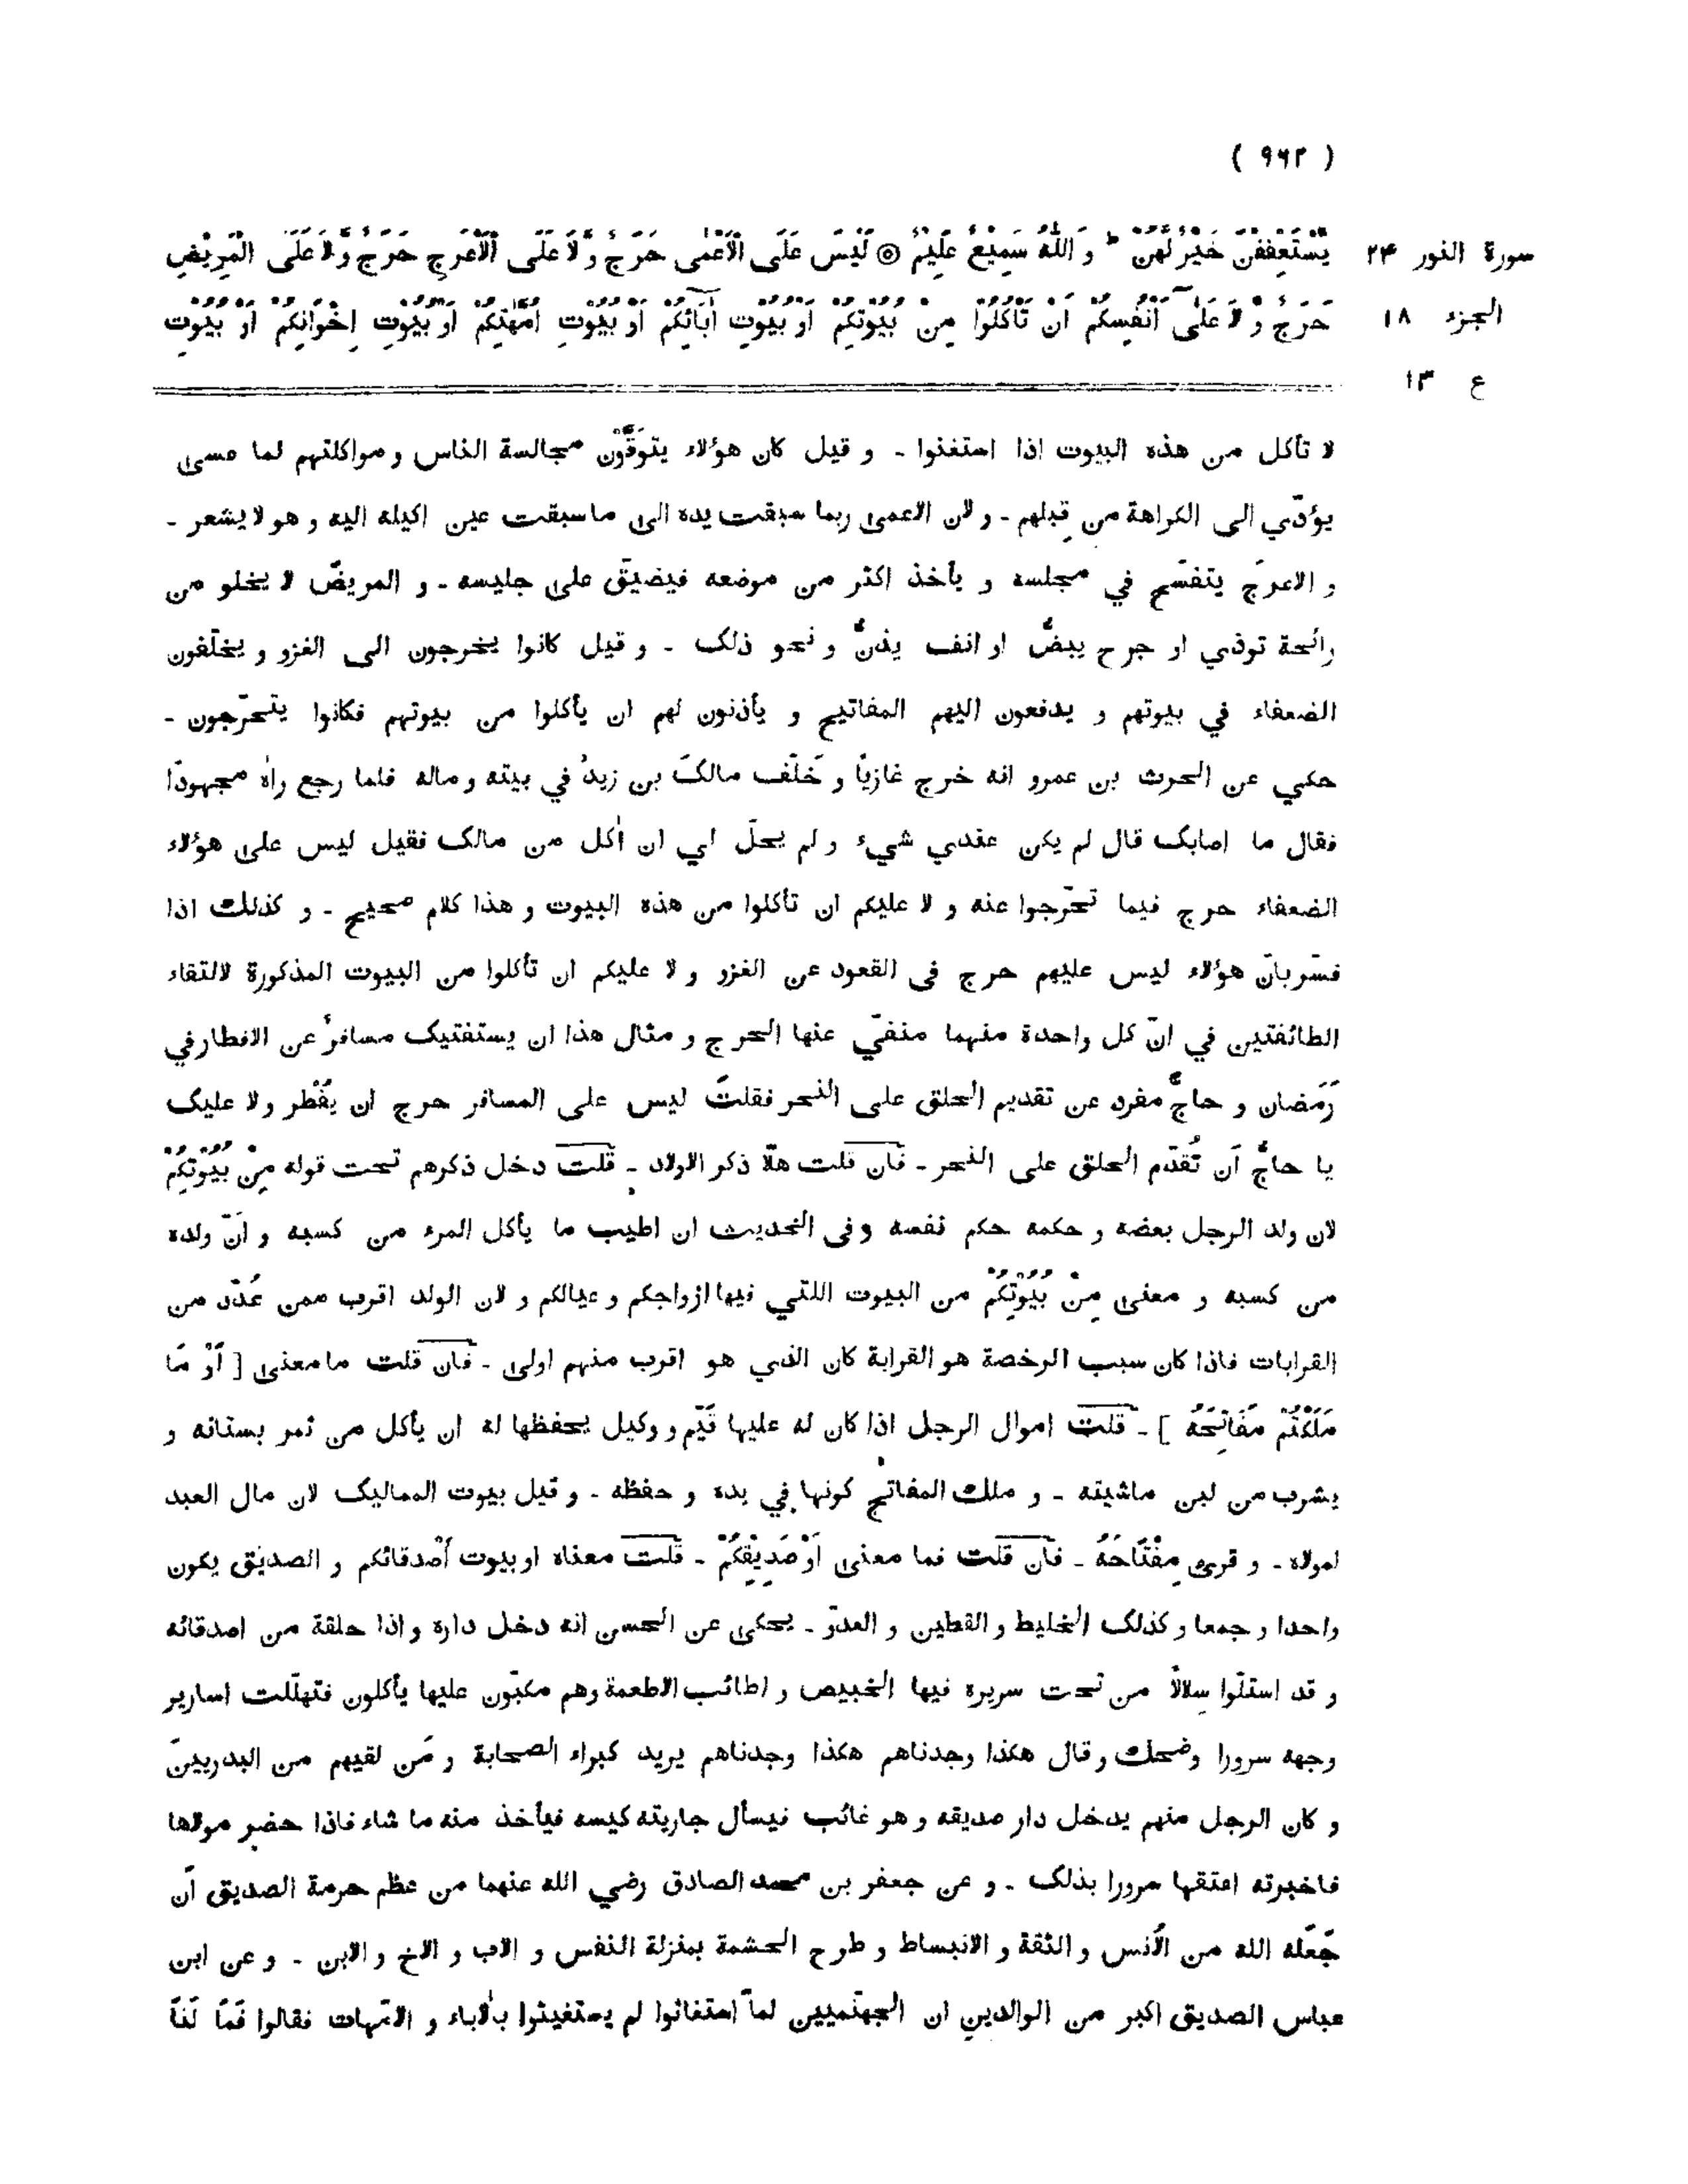 ( ٩٦٢ )
سورة النور ٢٤
الجزء ١٨
ع ١٣
يَّسْتَعْفِفْنَ خَيْرٌ لَّهُنَّ ط وَ اللّٰهُ سَمِيْعٌ عَلِيْمٌ ۞ لَيْسَ عَلَى الْاَعْمٰى حَرَجٌ وَّ لَا عَلَى الْاَعْرَجِ حَرَجٌ وَّ لَا عَلَى الْمَرِيْضِ
حَرَجٌ وَّ لَا عَلٰٓى اَنْفُسِكُمْ اَنْ تَاْكُلُوْا مِنْ بُيُوْتِكُمْ اَوْ بُيُوْتِ اٰبَآئِكُمْ اَوْ بُيُوْتِ اُمَّهٰتِكُمْ اَوْ بُيُوْتِ اِخْوَانِكُمْ اَوْ بُيُوْتِ
لا تأكل من هذه البيوت اذا استغنوا - و قيل كان هؤلاء يتوَقَّوْن مجالسة الناس و مواكلتهم لما عسى
يؤدّي الى الكراهة من قِبلهم - و لان الاعمى ربما سبقت يده الى ما سبقت عين اكيله اليه و هو لا يشعر -
و الاعرَج يتفسّح في مجلسه و يأخذ اكثر من موضعه فيضيّق على جليسه - و المريضُ لا يخلو من
رائحة توذي او جرح يبضُّ او انف يذنُّ و نحو ذلك - و قيل كانوا يخرجون الى الغزو و يخلّفون
الضعفاء في بيوتهم و يدفعون اليهم المفاتيح و يأذنون لهم ان يأكلوا من بيوتهم فكانوا يتحرّجون -
حكي عن الحرث بن عمرو انه خرج غازيًا و خَلّف مالكَ بن زيد في بيته و ماله فلما رجع راٰه مجهودًا
فقال ما اصابك قال لم يكن عندي شيء و لم يحلّ لي ان اٰكل من مالك فقيل ليس على هؤلاء
الضعفاء حرج فيما تحرّجوا عنه و لا عليكم ان تأكلوا من هذه البيوت و هذا كلام صحيح - و كذلك اذا
فسّر بانّ هؤلاء ليس عليهم حرج فى القعود عن الغزو و لا عليكم ان تأكلوا من البيوت المذكورة لالتقاء
الطائفتين في انّ كل واحدة منهما منفيّ عنها الحرج و مثال هذا ان يستفتيك مسافرٌ عن الافطار في
رَمَضان و حاجٌّ مفرد عن تقديم الحلق على النحر فقلتَ ليس على المسافر حرج ان يُفْطر ولا عليك
يا حاجُّ اَن تُقدّم الحلق على النحر - فان قلت هلّا ذكر الاولاد - قلت دخل ذكرهم تحت قوله مِنْ بُيُوْتِكُمْ
لان ولد الرجل بعضه و حكمه حكم نفسه وفى الحديث ان اطيب ما يأكل المرء من كسبه و اَنّ ولده
من كسبه و معنى مِنْ بُيُوْتِكُمْ من البيوت اللتي فيها ازواجكم و عيالكم و لان الولد اقرب ممن عُدّد من
القرابات فاذا كان سبب الرخصة هو القرابة كان الذي هو اقرب منهم اولى - فان قلت ما معنى [ اَوْ مَا
مَلَكْتُمْ مَفَاتِحَهُ ] - قلت اموال الرجل اذا كان له عليها قَيّم و وكيل يحفظها له ان يأكل من ثمر بستانه و
يشرب من لبن ماشيته - و ملك المفاتح كونها في يده و حفظه - و قيل بيوت المماليك لان مال العبد
لمولاه - و قرئ مِفْتَاحَهُ - فان قلت فما معنى اَوْ صَدِيْقِكُمْ - قلت معناه او بيوت اَصْدقائكم و الصديق يكون
واحدا و جمعا و كذلك الخليط و القطين و العدوّ - يحكى عن الحسن انه دخل داره و اذا حلقة من اصدقائه
و قد استلّوا سِلالاً من تحت سريره فيها الخبيص و اطائب الاطعمة وهم مكبّون عليها يأكلون فتهلّلت اسارير
وجهه سرورا وضحك و قال هكذا وجدناهم هكذا وجدناهم يريد كبراء الصحابة و مَن لقيهم من البدريينَ
و كان الرجل منهم يدخل دار صديقه و هو غائب فيسأل جاريته كيسه فيأخذ منه ما شاء فاذا حضر مولاها
فاخبرته اعتقها سرورا بذلك - و عن جعفر بن محمد الصادق رضي الله عنهما من عظم حرمة الصديق اَن
جَعله الله من الاُنس و الثقة و الانبساط و طرح الحشمة بمنزلة النفس و الاب و الاخ و الابن - و عن ابن
عباس الصديق اكبر من الوالدين ان الجهنّميين لمّا استغاثوا لم يستغيثوا بالاٰباء و الامّهات فقالوا فَمَا لَنَا